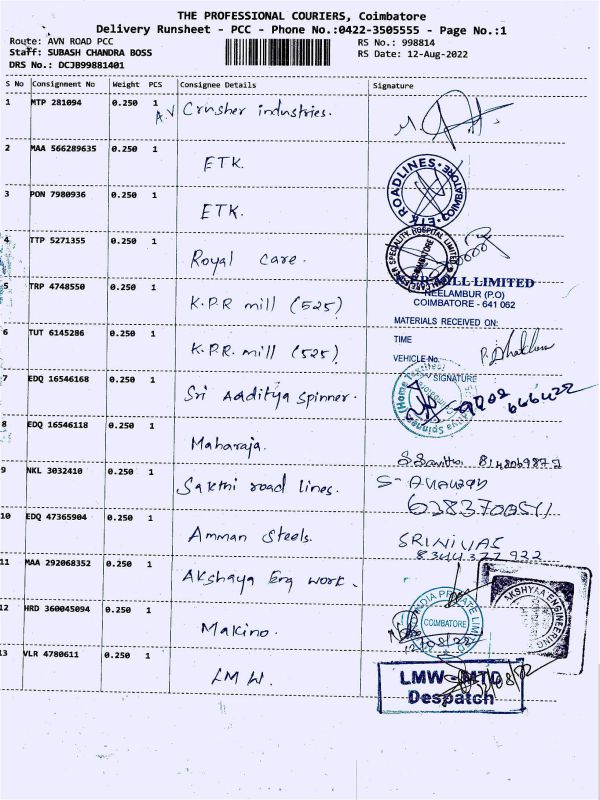 THE PROFESSIONAL COURIERS, Coimbatore
Delivery Runsheet - PCC - Phone No.:0422-3505555 - Page No.:1
Route: AVN ROAD PCC
RS No.: 998814
Staff: SUBASH CHANDRA BOSS
RS Date: 12-Aug-2022
DRS No.: DCJB99881401
S No Consignment No Weight PCS Consignee Details Signature
1 MTP 281094 0.250 1 A.V Crusher industries.
2 MAA 566289635 0.250 1 ETK.
ETK ROADLINES COIMBATORE
3 PON 7980936 0.250 1 ETK.
4 TTP 5271355 0.250 1 Royal care.
SPECIALITY HOSPITAL LIMITED COIMBATORE
5 TRP 4748550 0.250 1 K.P.R mill (525)
MILL LIMITED
NEELAMBUR (P.O)
COIMBATORE - 641 062
MATERIALS RECEIVED ON:
6 TUT 6145286 0.250 1 K.P.R. mill (525)
TIME
VEHICLE No.
SIGNATURE
7 EDQ 16546168 0.250 1 Sri Aaditya Spinner.
(Home Textiles)
8 EDQ 16546118 0.250 1 Maharaja.
9 NKL 3032410 0.250 1 Sakthi road lines.
6283700511
10 EDQ 47365904 0.250 1 Amman Steels.
SRINIVAS
8344377922
11 MAA 292068352 0.250 1 Akshaya Eng work.
AKSHYAA ENGINEERING
12 HRD 360045094 0.250 1 Makino.
INDIA PRIVATE LIMITED
COIMBATORE
12/08/22
13 VLR 4780611 0.250 1 LMW.
LMW-MTD
Despatch